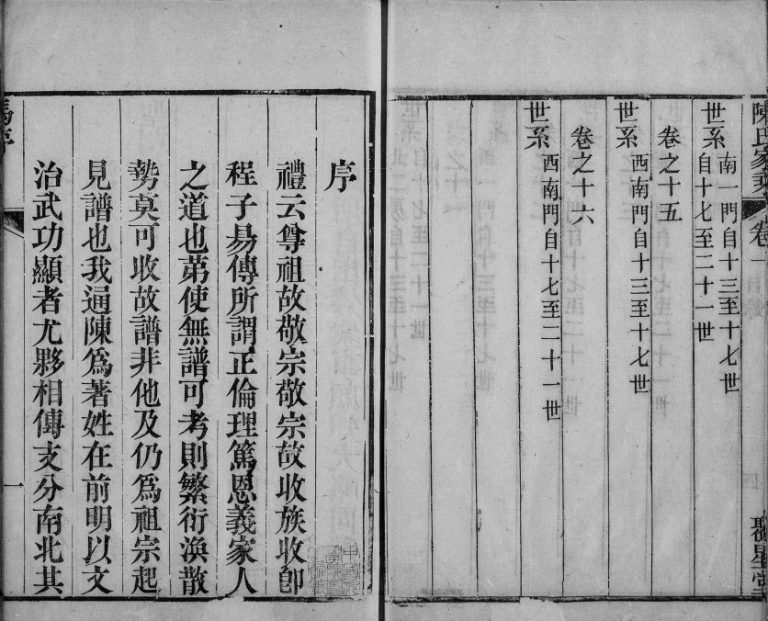 陳氏家乘 卷一 目錄
聚星堂
世系 南一門自十三至十七世
自十七至二十一世
卷之十五
世系 西南門自十三至十七世
卷之十六
世系 西南門自十七至二十一世
序
禮云尊祖故敬宗敬宗故收族收卽
程子易傳所謂正倫理篤恩義家人
之道也苐使無譜可考則繁衍渙散
勢莫可收故譜非他及仍爲祖宗起
見譜也我逼陳爲著姓在前明以文
治武功顯者尤夥相傳支分南北其
一